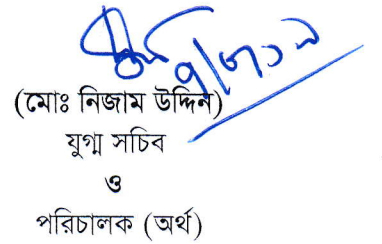 (মোঃ নিজাম উদ্দিন)
যুগ্ম সচিব
ও
পরিচালক (অর্থ)